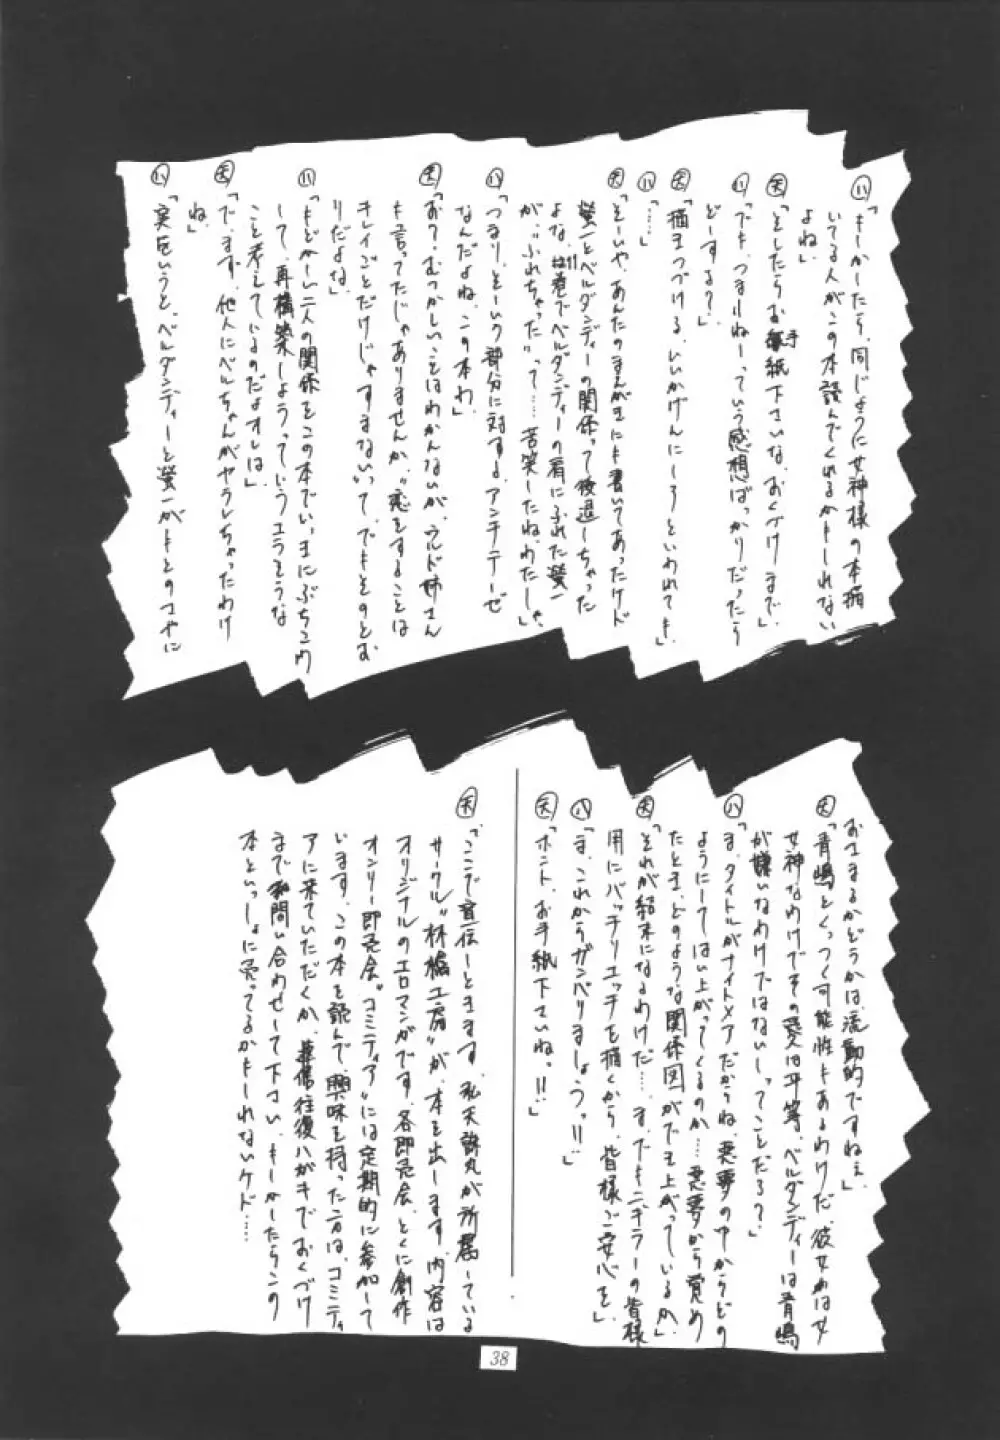 ㈧「もしかしたら、同じように女神様の本描
いてる人がこの本読んでくれるかもしれない
よね」
㊝「そしたらお手紙下さいな、おくづけまで」
㈧「でも、つまんねーっていう感想ばっかりだったら
どーする？」
㊝「描きつづける、いいかげんにしろといわれても」
㈧「……」
㊝「そーいや、あんたのまえがきにも書いてあったけど
螢一とベルダンディーの関係って後退しちゃった
よな、11巻でベルダンディーの肩にふれた螢一
が、“ふれちゃった”って……苦笑したね、わたしゃ」
㈧「つまり、そーいう部分に対する、アンチテーゼ
なんだよね、この本わ」
㊝「おて、むつかしいことはわかんないが、ウルド姉さん
も言ってたじゃありませんか、“恋をすることは
キレイごとだけじゃすまない”って、でもそのとお
りだよな」
㈧「もどかしい二人の関係をこの本でいっきにぶちこわ
して、再構築しようっていうエラそうな
こと考えているのだよオレは」
㊝「で、まず、他人にベルちゃんがヤラレちゃったわけ
ね」
㈧「実をいうと、ベルダンディーと螢一がもとのサヤに
おさまるかどうかは、流動的ですねぇ」
㊝「青嶋とくっつく可能性もあるわけだ、彼女かは女
女神なわけでその愛は平等、ベルダンディーは青嶋
が嫌いなわけではないしってことだろ？」
㈧「ま、タイトルがナイトメアだからね、悪夢の中からどの
ようにしてはい上がってくるのか……悪夢から覚め
たとき、どのような関係図ができ上がっているか」
㊝「それが結末になるわけだ……ま、でもニギラーの皆様
用にバッチリエッチを描くから、皆様ご安心を」
㈧「ま、これからガンバりましょうっ!!」
㊝「ホント、お手紙下さいねっ!!」
㊝「ここで宣伝しときます、私天誅丸が所属している
サークル“林檎工房”が、本を出します、内容は
オリジナルのエロマンガです、各即売会、とくに創作
オンリー即売会“コミティア”には定期的に参加して
います、この本を読んで、興味を持った方は、コミティ
アに来ていただくか、葉書往復ハガキでおくづけ
まで問い合わせして下さい、もしかしたらこの
本といっしょに売ってるかもしれないケド……
38